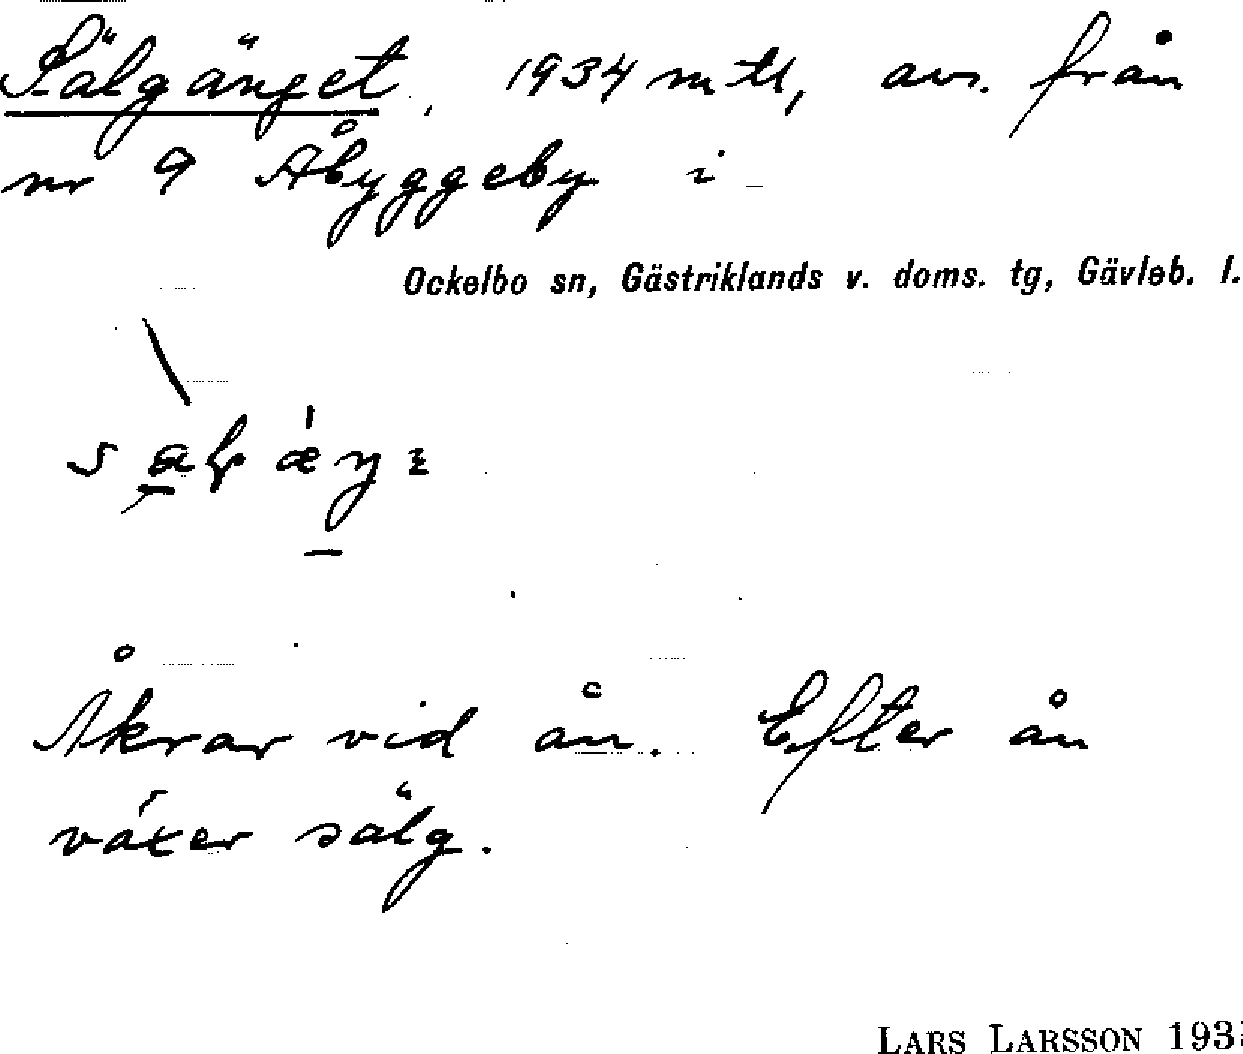 Sälgänget, 1934 mtl, avs. från
nr 9 Åbyggeby i
Ockelbo sn, Gästriklands v. doms. tg, Gävleb. l.
Åkrar vid ån. Efter ån
växer sälg.
LARS LARSSON 193